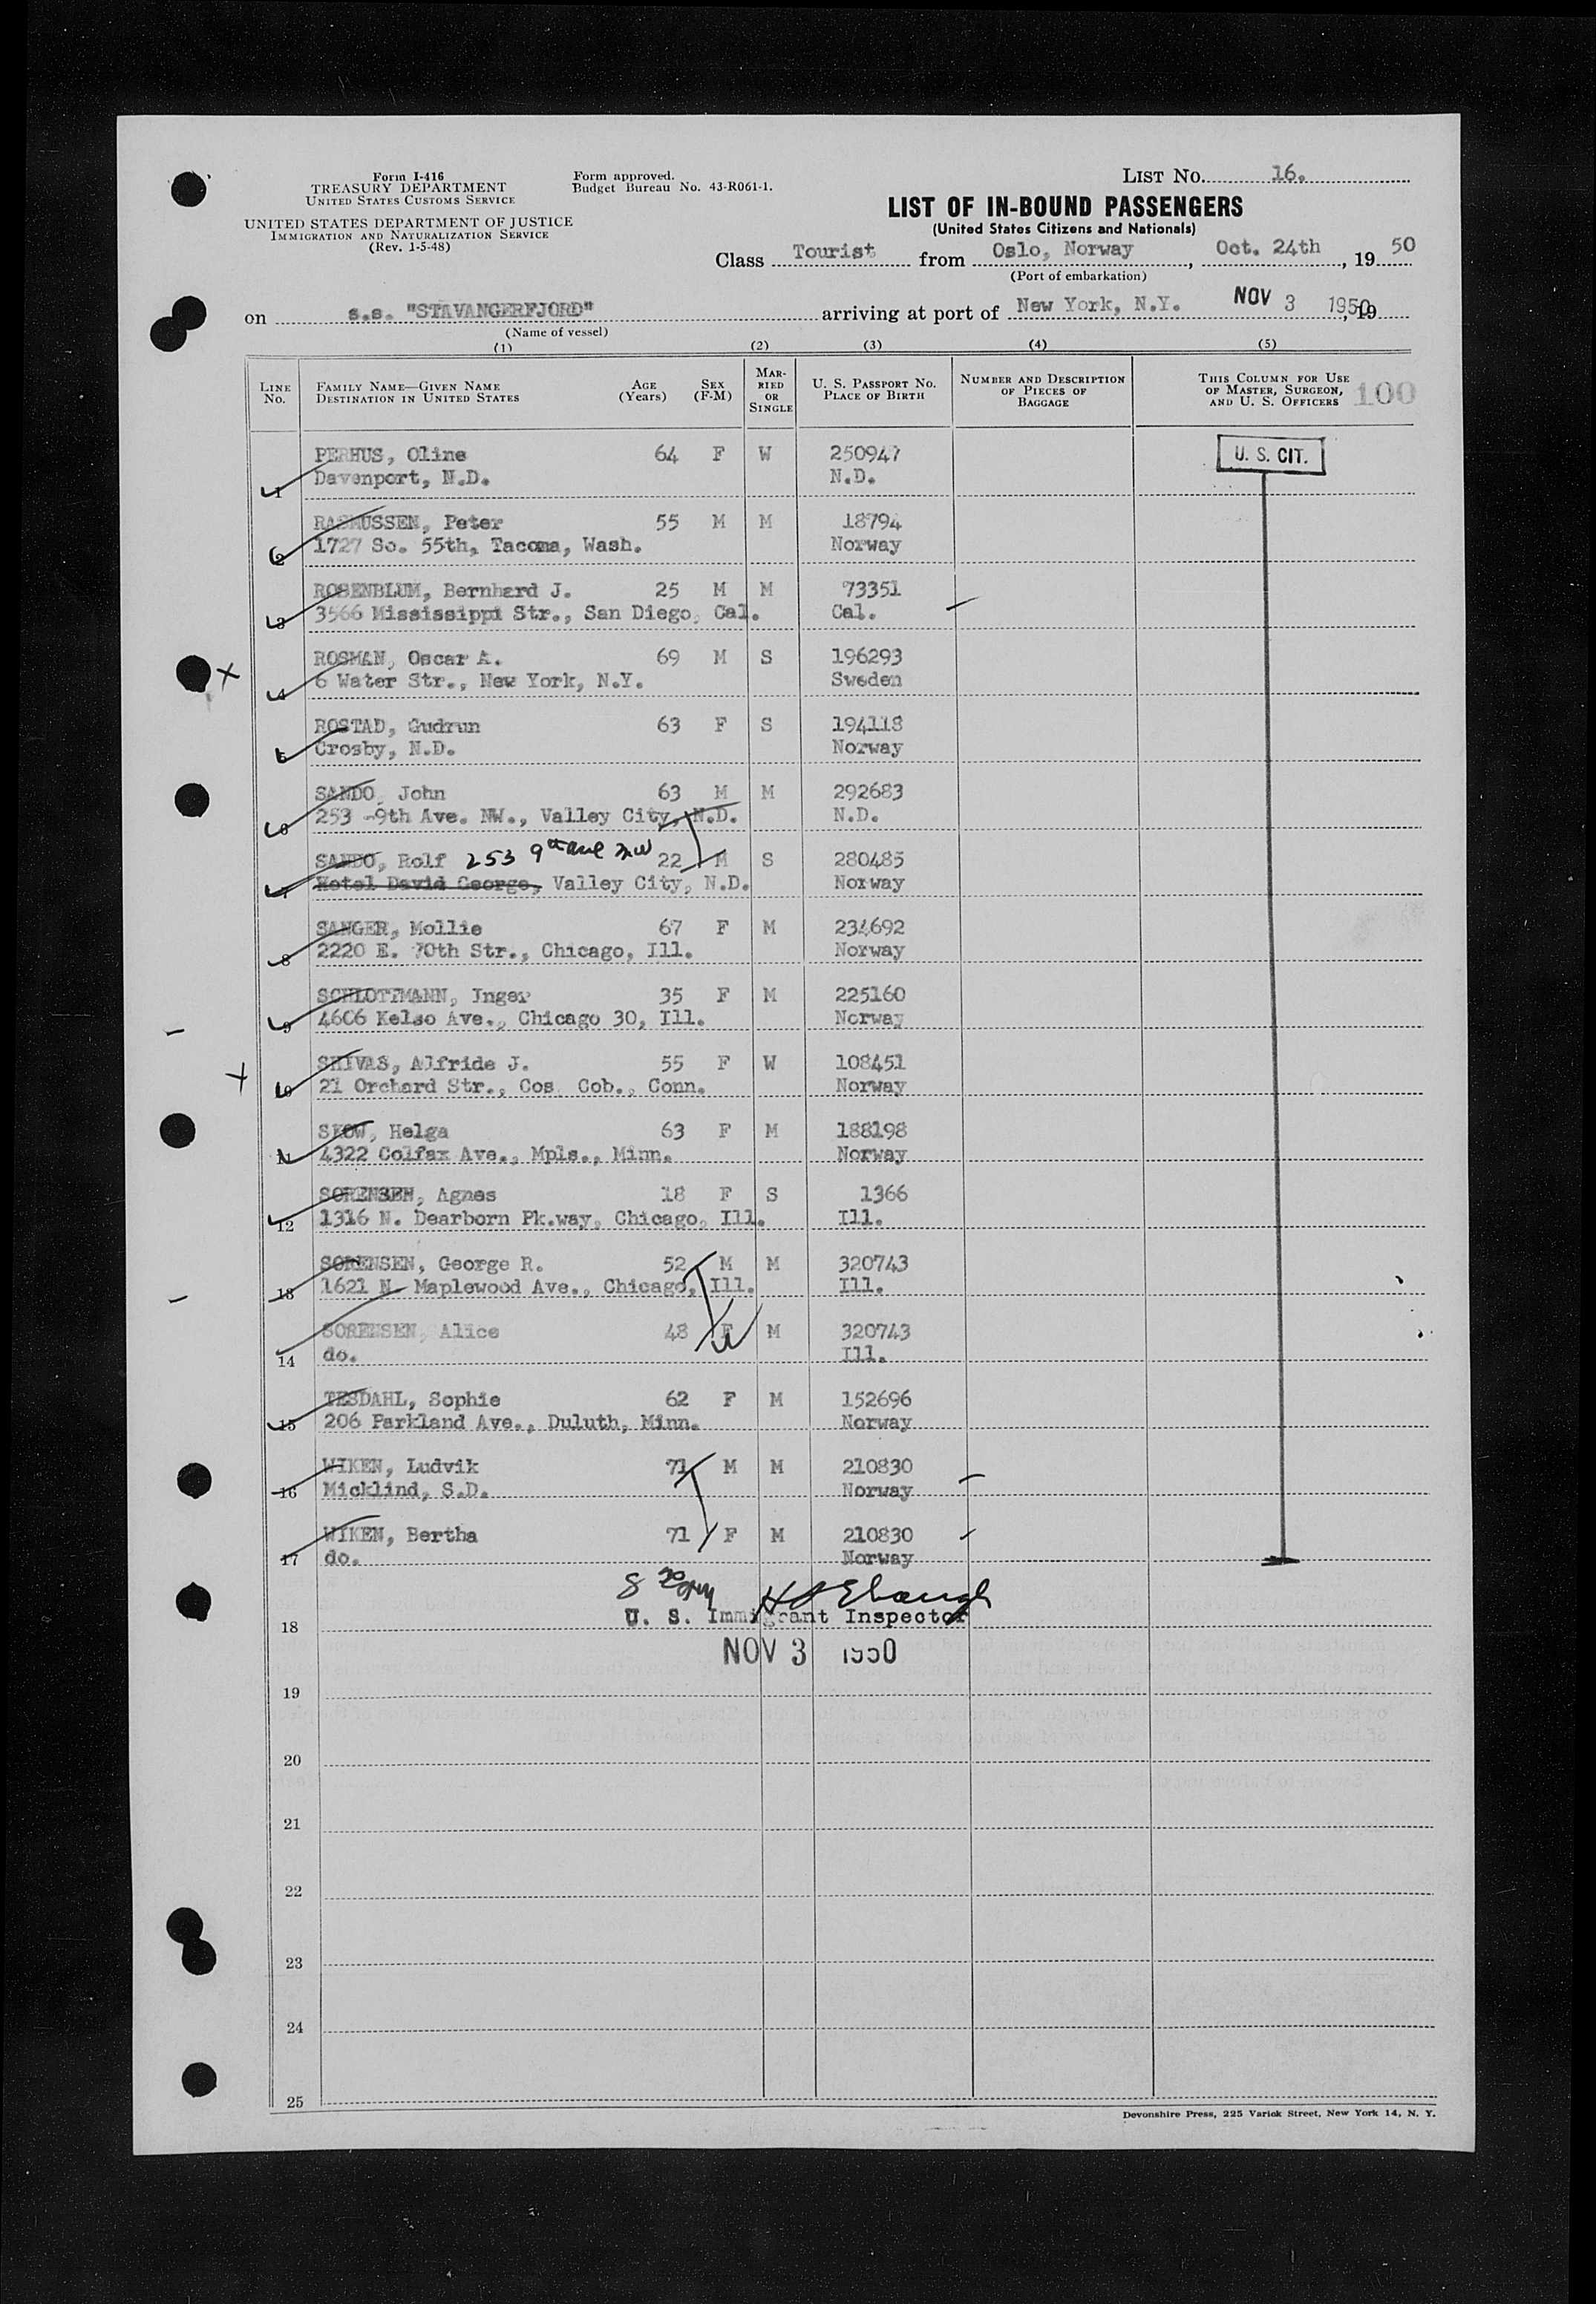 Form I-416
TREASURY DEPARTMENT
UNITED STATES CUSTOMS SERVICE
UNITED STATES DEPARTMENT OF JUSTICE
IMMIGRATION AND NATURALIZATION SERVICE
(Rev. 1-5-48)
Form approved.
Budget Bureau No. 43-R061-1.
LIST No. 16.
LIST OF IN-BOUND PASSENGERS
(United States Citizens and Nationals)
Class Tourist from Oslo, Norway, Oct. 24th, 19 50
(Port of embarkation)
on s.s. "STAVANGERFJORD" arriving at port of New York, N.Y. NOV 3 1950, 19
(Name of vessel)
(1) (2) (3) (4) (5)
LINE No. FAMILY NAME—GIVEN NAME DESTINATION IN UNITED STATES AGE (Years) SEX (F-M) MARRIED OR SINGLE U. S. PASSPORT NO. PLACE OF BIRTH NUMBER AND DESCRIPTION OF PIECES OF BAGGAGE THIS COLUMN FOR USE OF MASTER, SURGEON, AND U. S. OFFICERS 100
PERHUS, Oline 64 F W 250947 U. S. CIT.
1 Davenport, N.D. N.D.
RASMUSSEN, Peter 55 M M 18794
2 1727 So. 55th, Tacoma, Wash. Norway
ROSENBLUM, Bernhard J. 25 M M 73351
3 3566 Mississippi Str., San Diego, Cal. Cal.
ROSMAN, Oscar A. 69 M S 196293
x 4 6 Water Str., New York, N.Y. Sweden
ROSTAD, Gudrun 63 F S 194118
5 Crosby, N.D. Norway
SANDO, John 63 M M 292683
6 253 -9th Ave. NW., Valley City, N.D. N.D.
SANDO, Rolf 253 9th Ave NW 22 M S 280485
7 Hotel David George, Valley City, N.D. Norway
SANGER, Mollie 67 F M 234692
8 2220 E. 70th Str., Chicago, Ill. Norway
SCHLOTTMANN, Inger 35 F M 225160
9 4606 Kelso Ave., Chicago 30, Ill. Norway
SHIVAS, Alfride J. 55 F W 108451
x 10 21 Orchard Str., Cos. Cob., Conn. Norway
SKOW, Helga 63 F M 188198
11 4322 Colfax Ave., Mpls., Minn. Norway
SORENSEN, Agnes 18 F S 1366
12 1316 N. Dearborn Pk.way, Chicago, Ill. Ill.
SORENSEN, George R. 52 M M 320743
13 1621 N. Maplewood Ave., Chicago, Ill. Ill.
SORENSEN, Alice 48 F M 320743
14 do. Ill.
TESDAHL, Sophie 62 F M 152696
15 206 Parkland Ave., Duluth, Minn. Norway
WIKEN, Ludvik 71 M M 210830
16 Micklind, S.D. Norway
WIKEN, Bertha 71 F M 210830
17 do. Norway
U. S. Immigrant Inspector
18
NOV 3 1950
19
20
21
22
23
24
25
Devonshire Press, 225 Varick Street, New York 14, N. Y.